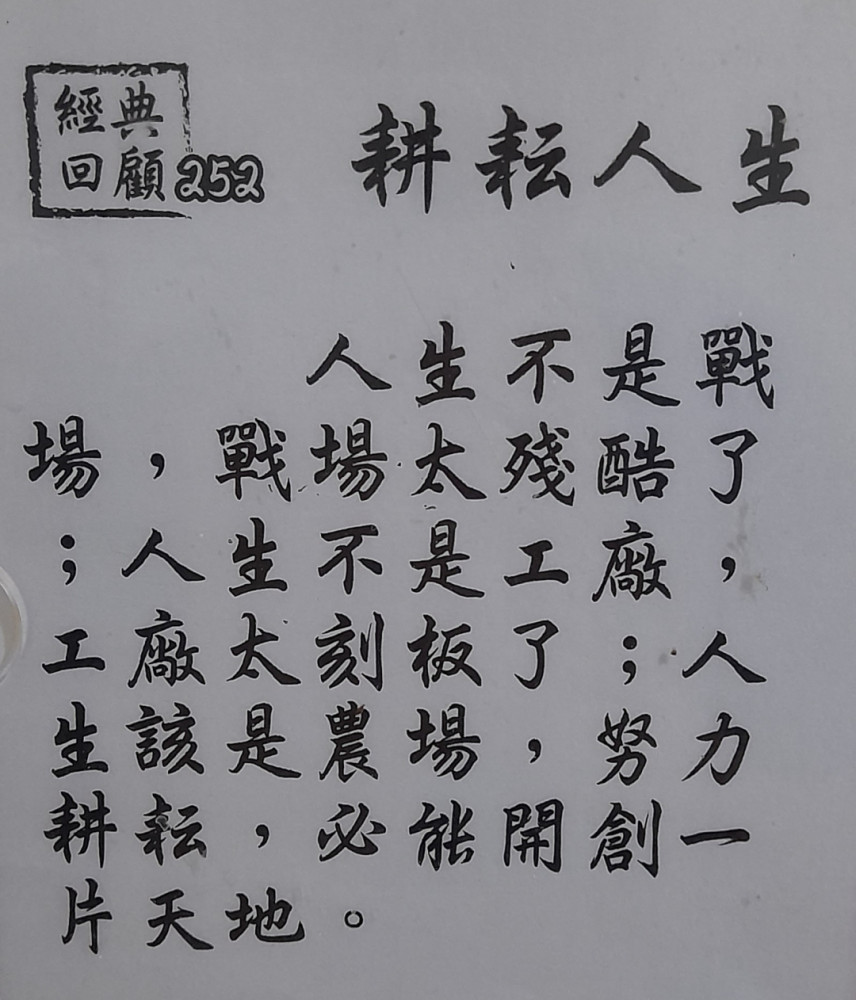 經典
回顧252
耕耘人生
人生不是戰
場，戰場太殘酷了
；人生不是工廠，
工廠太刻板了；人
生該是農場，努力
耕耘，必能開創一
片天地。